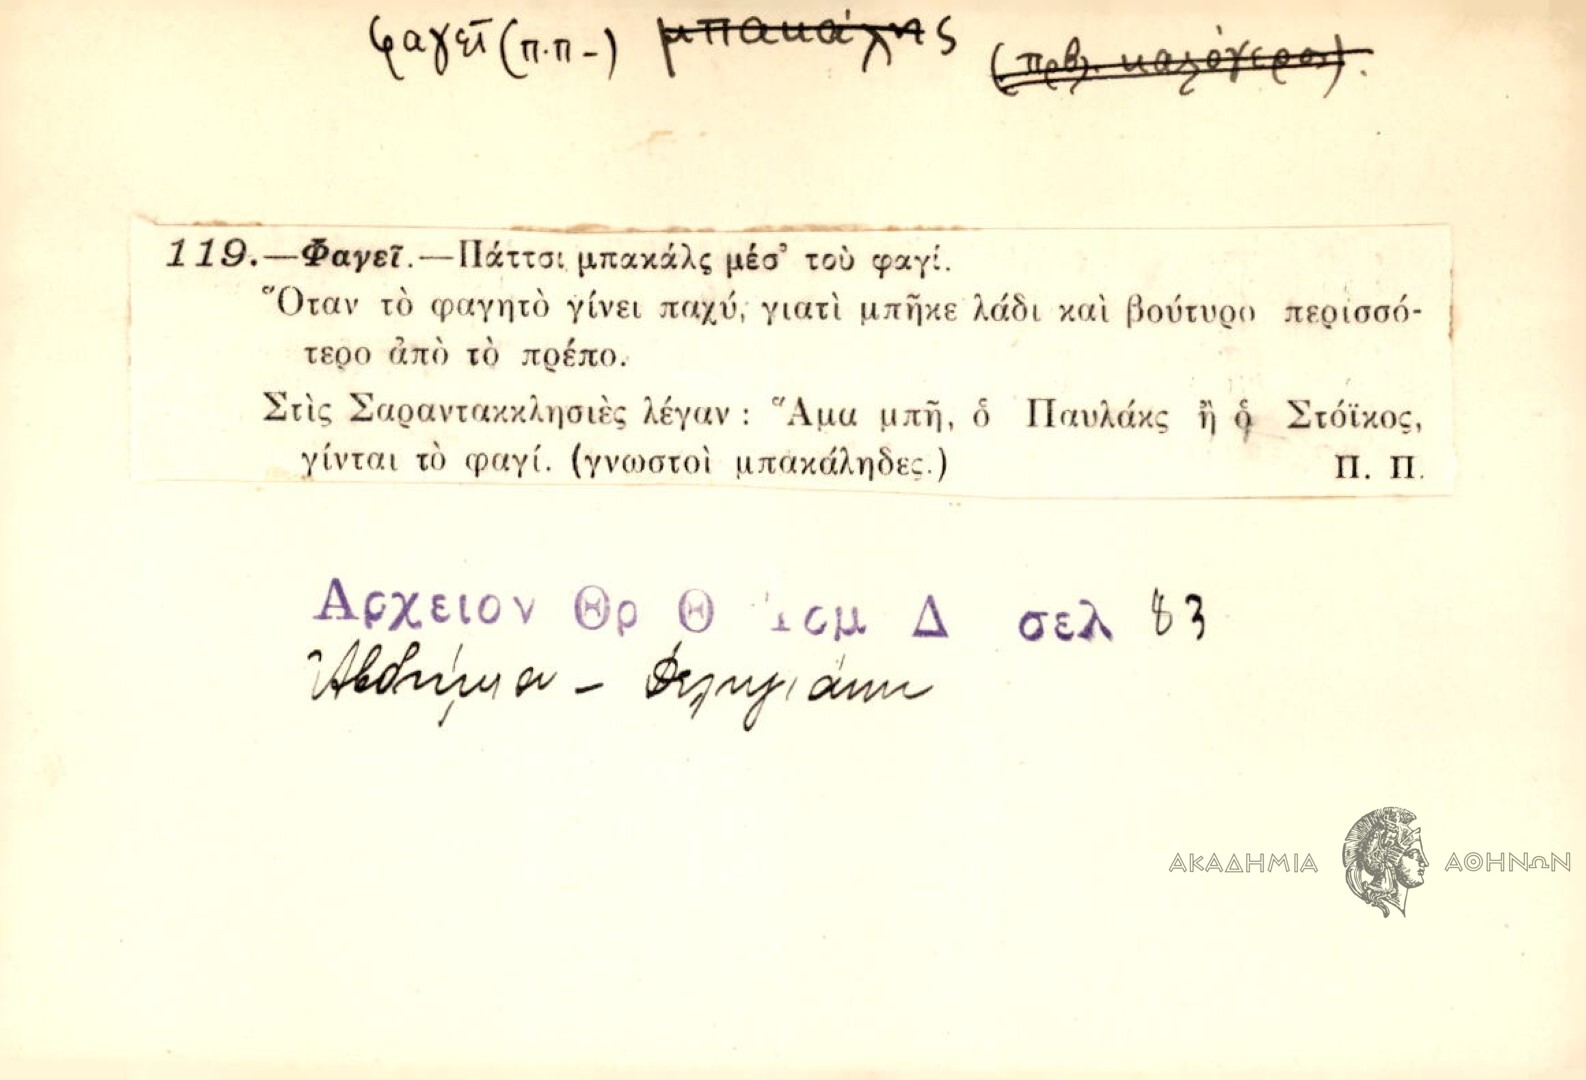 φαγεῖ (π.π-) μπακάλης (πρβλ. καλόγερος).
119.—Φαγεῖ.—Πάττσι μπακάλς μέσ' τοὺ φαγί.
Ὅταν τὸ φαγητὸ γίνει παχύ, γιατὶ μπῆκε λάδι καὶ βούτυρο περισσό-
τερο ἀπὸ τὸ πρέπο.
Στὶς Σαραντακκλησιὲς λέγαν : Ἅμα μπῆ, ὁ Παυλάκς ἢ ὁ Στόϊκος,
γίνται τὸ φαγί. (γνωστοὶ μπακάληδες.) Π. Π.
Αρχειον Θρ Θ Τομ Δ σελ 83
ΑΚΑΔΗΜΙΑ ΑΘΗΝΩΝ